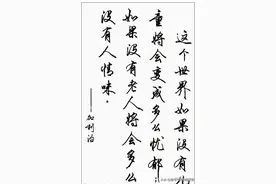 这个世界如果没有
童将会变成多么忧郁；
如果没有老人将会多么
没有人情味。
——加利治